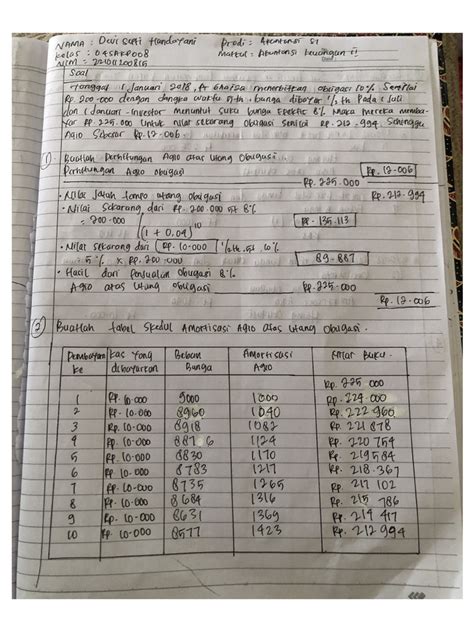 NAMA : Dewi Suti Handayani Prodi : Akuntansi S1
Kelas : 04SAKP008 Matkul : Akuntansi keuangan II
NIM = 221011200815
Soal
Tanggal 1 Januari 2018, Pt menerbitkan obligasi 10% Senilai
Rp. 200.000 dengan jangka waktu 5 th, bunga dibayar ½ th Pada 1 Juli
dan 1 Januari. Investor menuntut suku bunga efektif 8%. Maka mereka memba-
yar Rp. 225.000 untuk nilai sekarang obligasi senilai Rp. 212.994. Sehingga
Agio Sebesar Rp. 12.006.
① Buatlah Perhitungan Agio atas Utang Obligasi
Perhitungan Agio obligasi Rp. 12.006
Rp. 225.000
• Nilai Jatuh tempo utang obligasi Rp. 212.994
• Nilai Sekarang dari Rp. 200.000 5t 8%
= 200.000 Rp. 135.113
(1 + 0,04)10
• Nilai sekarang dari Rp. 10.000 ½ th. 5t. 10%
= 5% x Rp. 200.000 89.887
• Hasil dari Penjualan Obligasi 8% Rp. 225.000
Agio atas utang obligasi Rp. 12.006
② Buatlah tabel Skedul Amortisasi Agio atas Utang Obligasi.
Pembayaran ke Kas Yang dibayarkan Beban Bunga Amortisasi Agio Nilai Buku.
Rp. 225.000
1 Rp. 10.000 9000 1000 Rp. 224.000
2 Rp. 10.000 8960 1040 Rp. 222 960
3 Rp. 10.000 8918 1082 Rp. 221 878
4 Rp. 10.000 8876 1124 Rp. 220 754
5 Rp. 10.000 8830 1170 Rp. 219 584
6 Rp. 10.000 8783 1217 Rp. 218.367
7 Rp. 10.000 8735 1265 Rp. 217 102
8 Rp. 10.000 8684 1316 Rp. 215 786
9 Rp. 10.000 8631 1369 Rp. 214 417
10 Rp. 10.000 8577 1423 Rp. 212 994